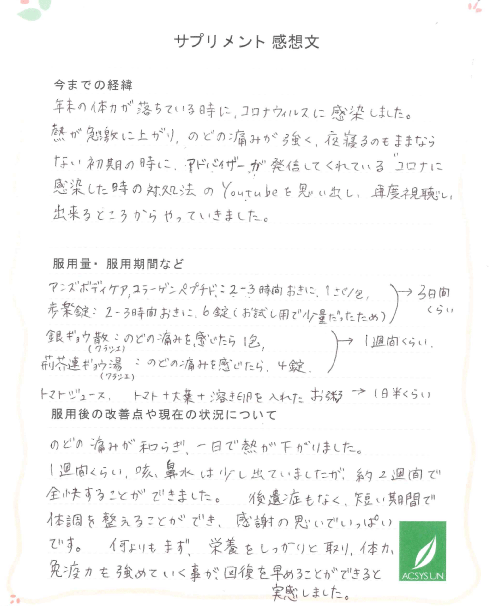 サプリメント 感想文
今までの経緯
年末の体力が落ちている時に、コロナウィルスに感染しました。
熱が急激に上がり、のどの痛みが強く、夜寝るのもままなら
ない初期の時に、アドバイザーが発信してくれている"コロナに
感染した時の対処法のYoutubeを思い出し、再度視聴し、
出来るところからやっていきました。
服用量・服用期間など
アンズボディケア,コラーゲンペプチド:2-3時間おきに、1さじ/包,
歩楽錠:2-3時間おきに、6錠(お試し用で少量だったため)
→3日間
くらい
銀ギョウ散:のどの痛みを感じたら1包,
(クラシエ)
荊芥連ギョウ湯:のどの痛みを感じたら、4錠
(クラシエ)
→1週間くらい.
トマトジュース、トマト+大葉+溶き卵を入れたお粥→1日半くらい
服用後の改善点や現在の状況について
のどの痛みが和らぎ、一日で熱が下がりました。
1週間くらい、咳、鼻水は少し出ていましたが、約2週間で
全快することができました。 後遺症もなく、短い期間で
体調を整えることができ、感謝の思いでいっぱい
です。 何よりもまず、栄養をしっかりと取り、体力、
免疫力も強めていく事が、回復を早めることができると
実感しました。
ACSYSLIN